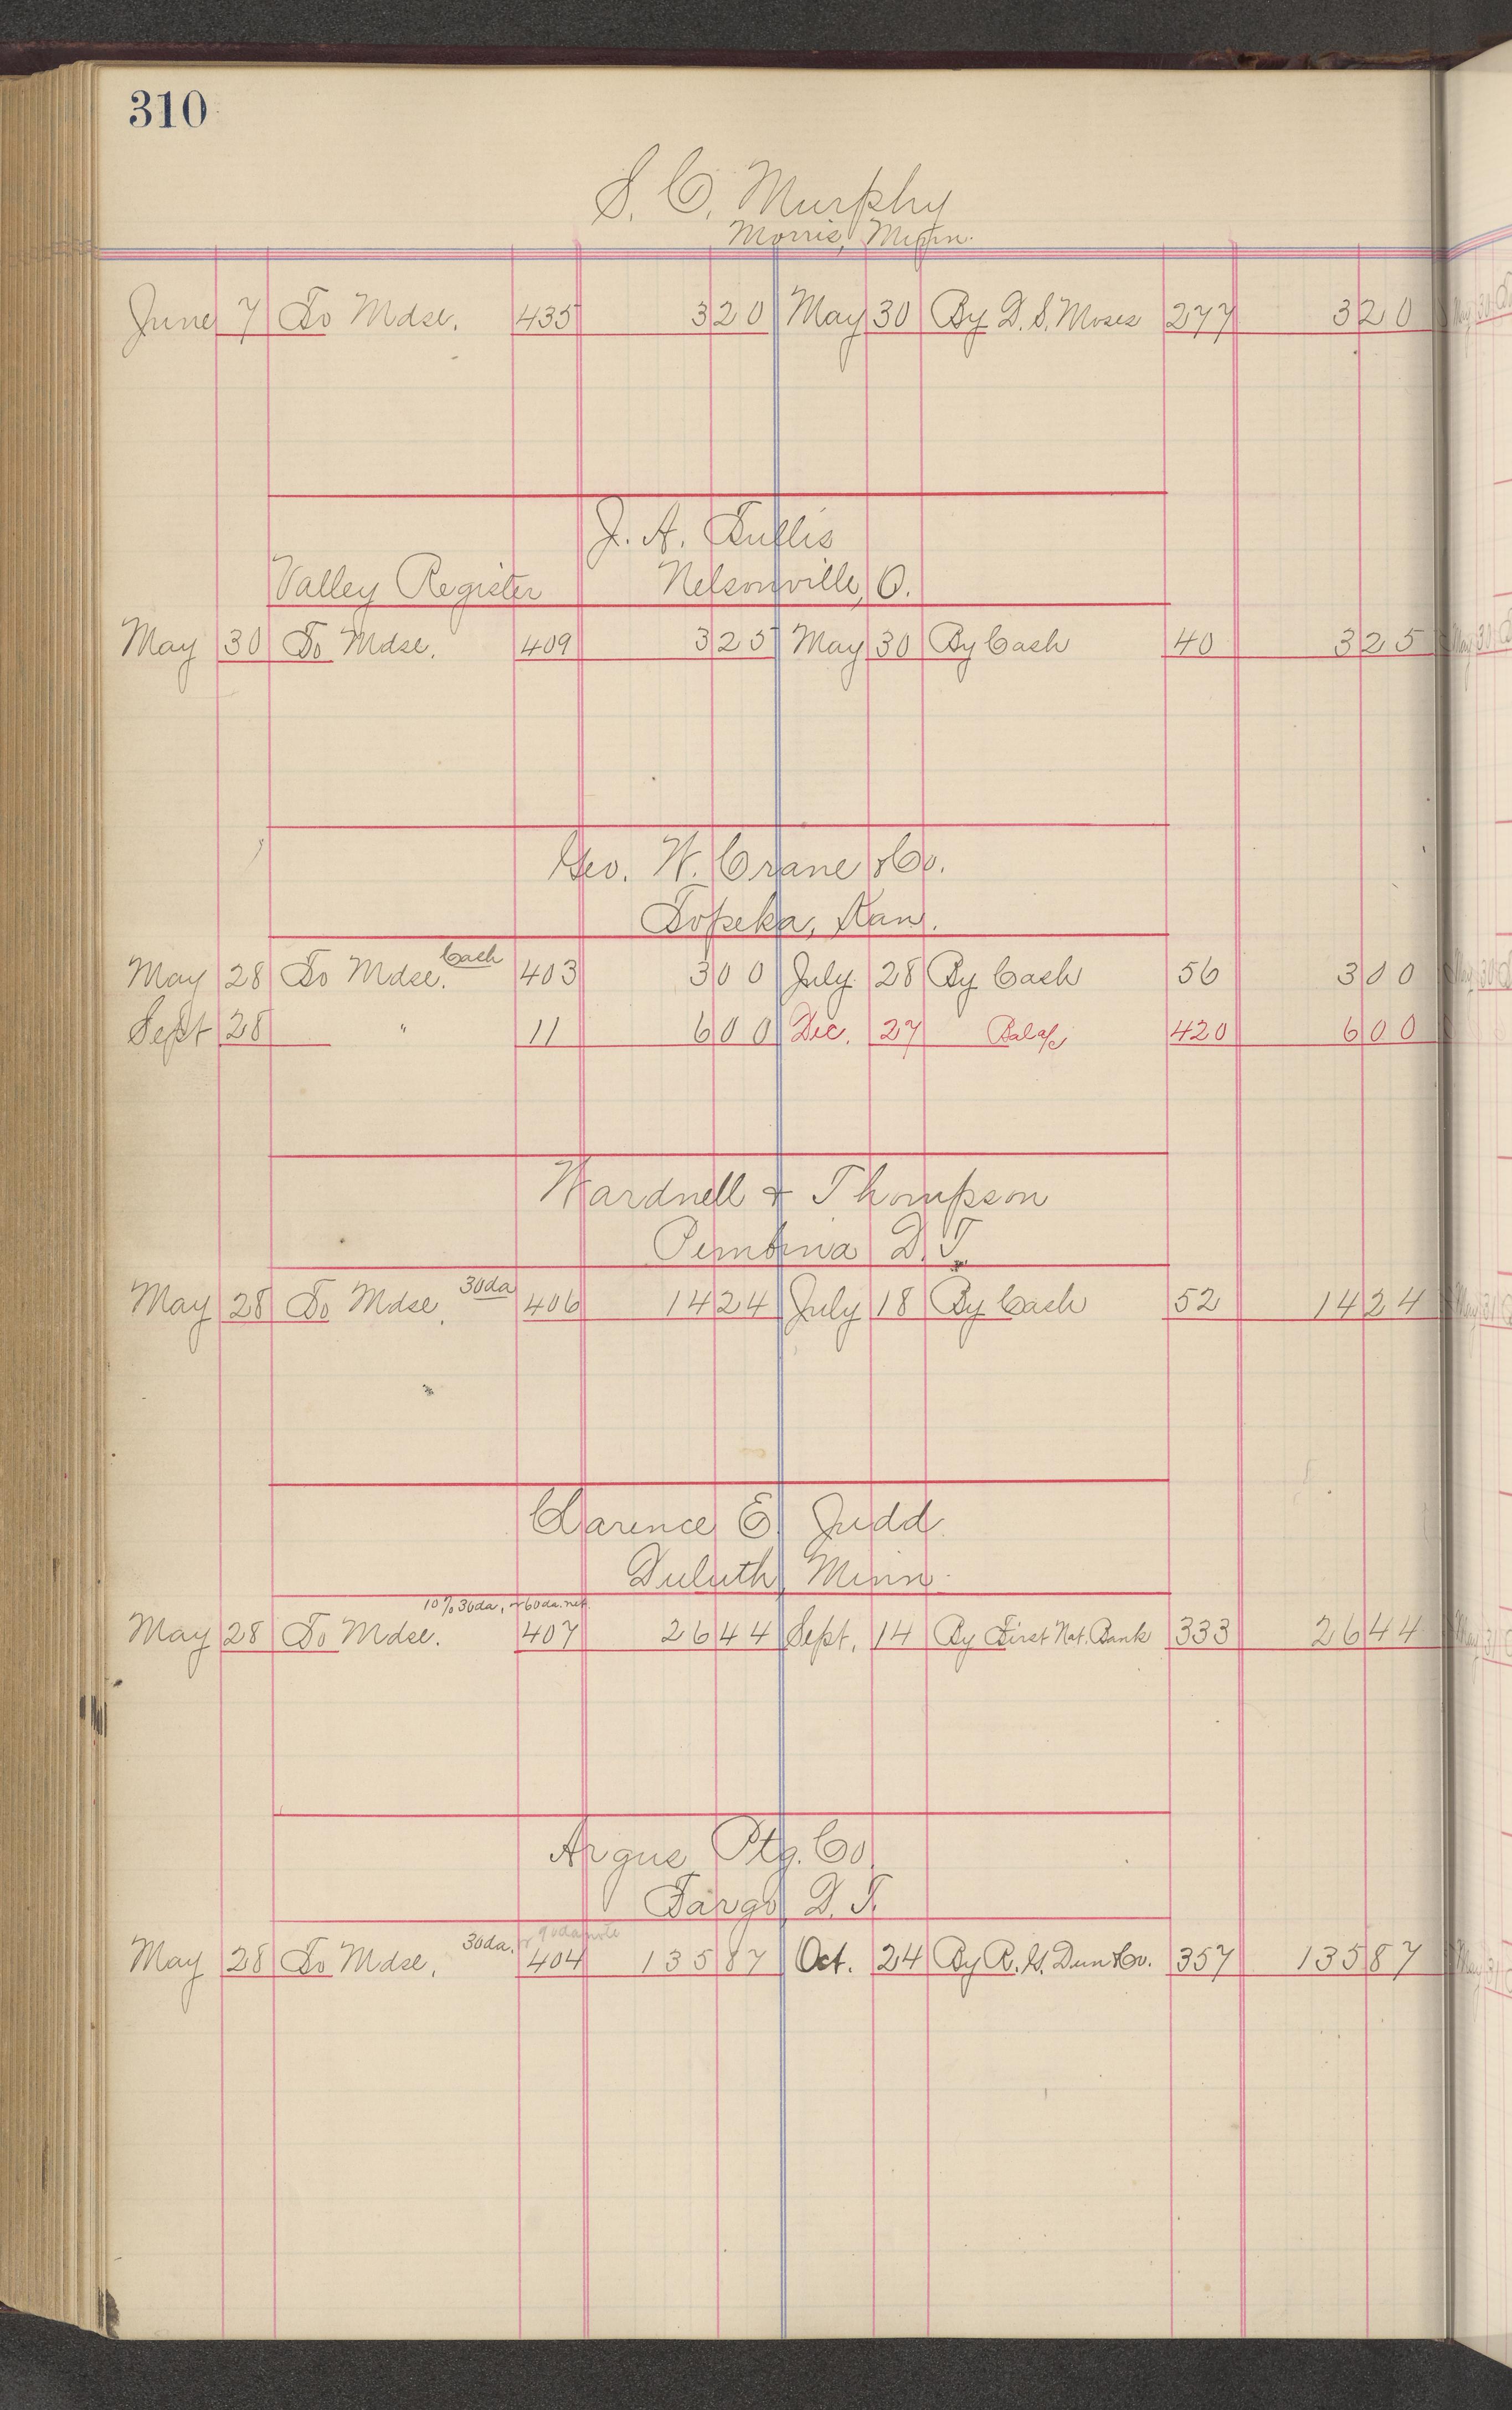 310
S. C. Murphy
Morris, Minn.
June 7 To Mdse. 435 3 20 May 30 By D. S. Moses 277 3 20
J. A. Tullis
Valley Register Nelsonville, O.
May 30 To Mdse. 409 3 25 May 30 By Cash 40 3 25
Geo. W. Crane & Co.
Topeka, Kan.
May 28 To Mdse. Cash 403 3 00 July 28 By Cash 56 3 00
Sept 28 " 11 6 00 Dec. 27 Bal a/c 420 6 00
Wardnell & Thompson
Pembina D. T.
May 28 To Mdse. 30da 406 14 24 July 18 By Cash 52 14 24
Clarence E. Judd
Duluth, Minn.
10% 30da, or 60da. net
May 28 To Mdse. 407 26 44 Sept. 14 By First Nat. Bank 333 26 44
Argus Ptg. Co.
Fargo, D. T.
30da. or 90da note
May 28 To Mdse. 404 135 87 Oct. 24 By R. G. Dun & Co. 357 135 87